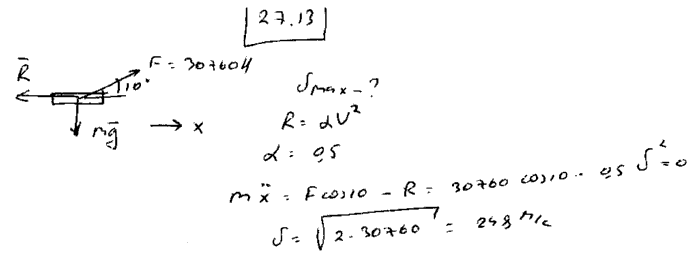 27.13
R̅
F = 30760H
10°
mg̅
→ x
υmax - ?
R = αV²
α = 0,5
mẍ = F cos10 - R = 30760 cos10 - 0,5 υ² = 0
υ = √2·30760 = 248 м/с